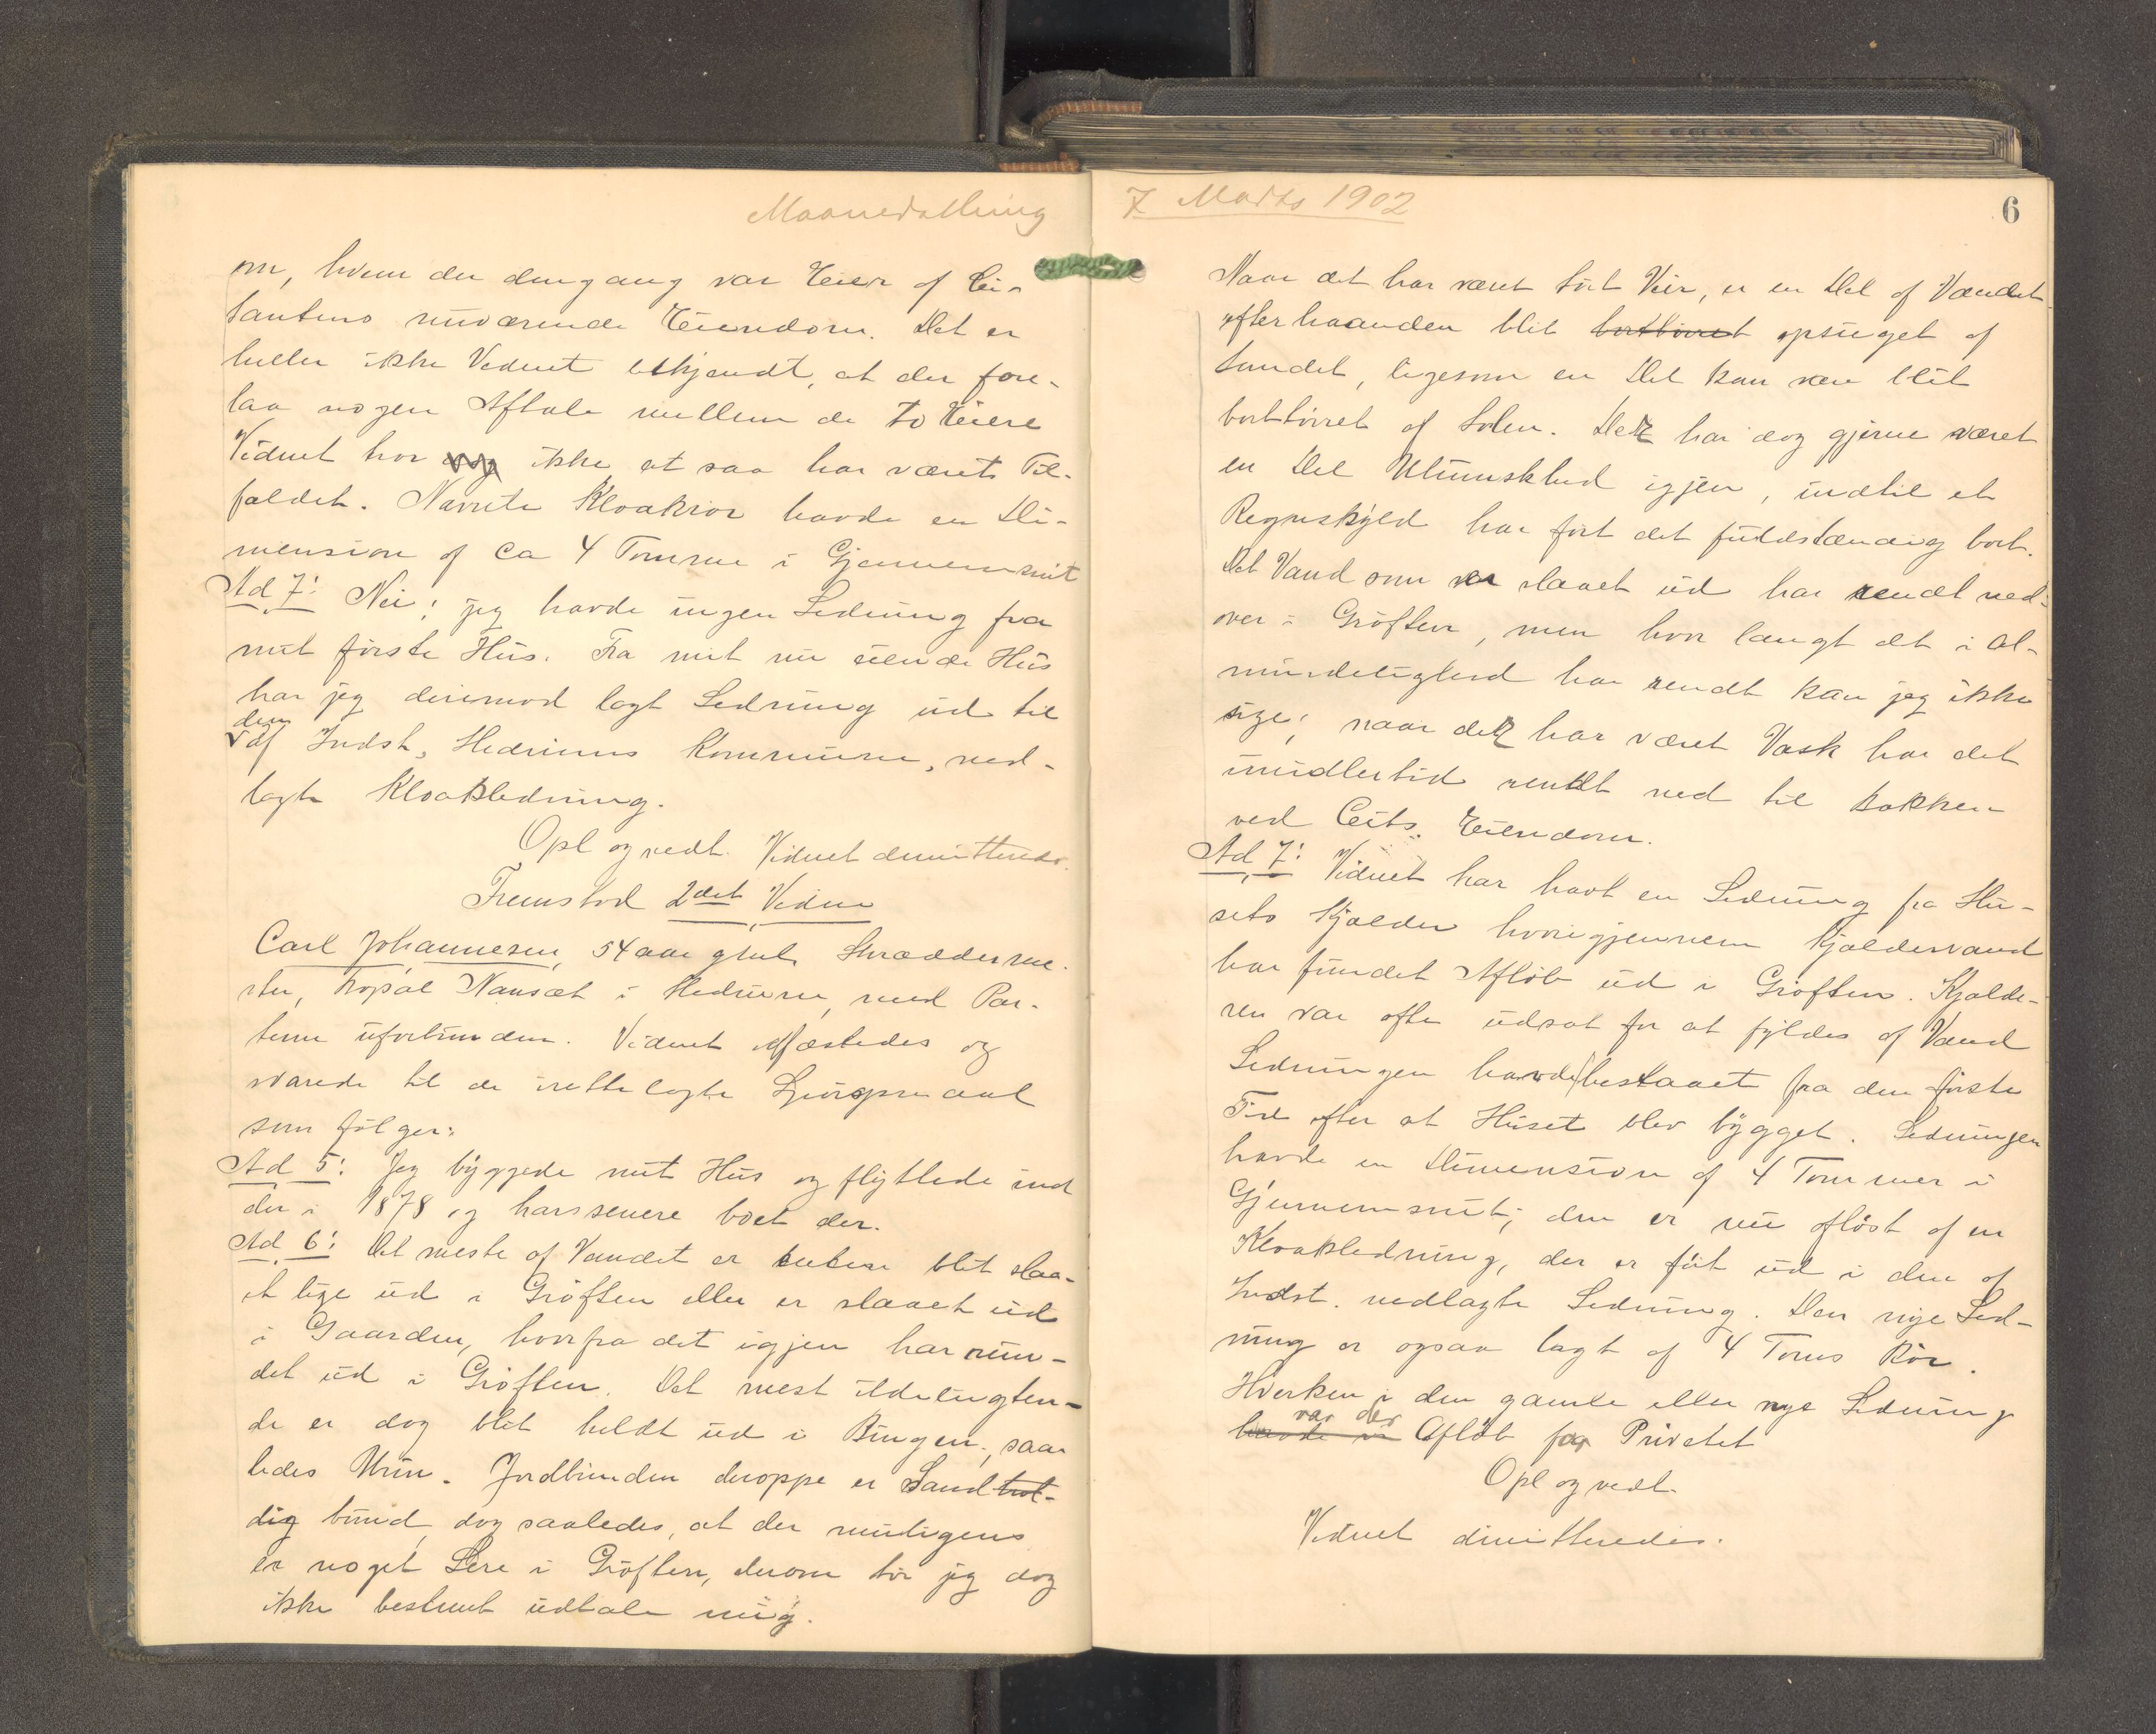 Maanedsthing
om, hvem der dengang var Eier af Ci-
tantens nuværende Eiendom. Det er
heller ikke Vidnet bekjendt, at der fore-
laa nogen Aftale mellem de to Eiere
Vidnet tror ikke at saa har været Til-
fældet. Nævnte Kloakrør havde en Di-
mension af ca 4 Tomme i Gjennemsnit
Ad 7: Nei; jeg havde ingen Ledning fra
mit første Hus. Fra mit nu eiende Hus
har jeg derimod lagt Ledning ud til
den af Indst, Hedrums Kommune, ned-
lagte Kloakledning.
Opl og vedt. Vidnet demitteredes.
Fremstod 2det Vidne
Carl Johannesen, 54 aar gml, Skrædderme-
ster, Bopæl Nansæt i Hedrum, med Par-
terne uforbunden. Vidnet edfæstedes og
svarede til de irettelagte Spørgsmaal
som følger:
Ad 5: Jeg byggede mit Hus og flyttede ind
der i 1878 og har senere boet der.
Ad 6: Det meste af Vandet er enten blit slaa-
et lige ud i Grøften eller er slaaet ud
i Gaarden, hvorfra det igjen har run-
det ud i Grøften. Det mest ildelugten-
de er dog blit heldt ud i Bingen, saa-
ledes Urin. Jordbunden deroppe er Sandhol-
dig bund, dog saaledes, at der muligens
er noget Lere i Grøften, derom tør jeg dog
ikke bestemt udtale mig.
7 Marts 1902
6
Naar det har været tørt Veir, er en Del af Vandet
efterhaanden blit borttørret opsuget af
Sandet, ligesom en Del kan være blit
borttørret af Solen. Der har dog gjerne været
en Del Uhumskhed igjen, indtil et
Regnskyld har ført det fuldstændig bort.
Det Vand som er slaaet ud har rendt ned-
over i Grøften, men hvor langt det i Al-
mindelighed har rendt kan jeg ikke
sige; naar der har været Vask har det
imidlertid rendt ned til Bakken
ved Cits. Eiendom.
Ad 7: Vidnet har havt en Ledning fra Hu-
sets Kjælder hvorigjennem Kjældervand
har fundet Afløb ud i Grøften. Kjælde-
ren var ofte udsat for at fyldes af Vand
Ledningen havde bestaaet fra den første
Tid efter at Huset blev bygget. Ledningen
havde en Dimension af 4 Tommer i
Gjennemsnit; den er nu afløst af en
Kloakledning, der er ført ud i den af
Indst. nedlagte Ledning. Den nye Led-
ning er ogsaa lagt af 4 Toms Rør.
Hverken i den gamle eller nye Ledning
havde var der Afløb for Privetet
Opl og vedt.
Vidnet dimitteredes.